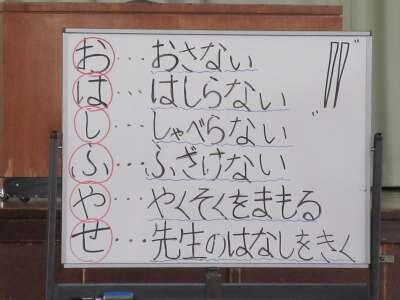 お…おさない
は…はしらない
し…しゃべらない
ふ…ふざけない
や…やくそくをまもる
せ…先生のはなしをきく